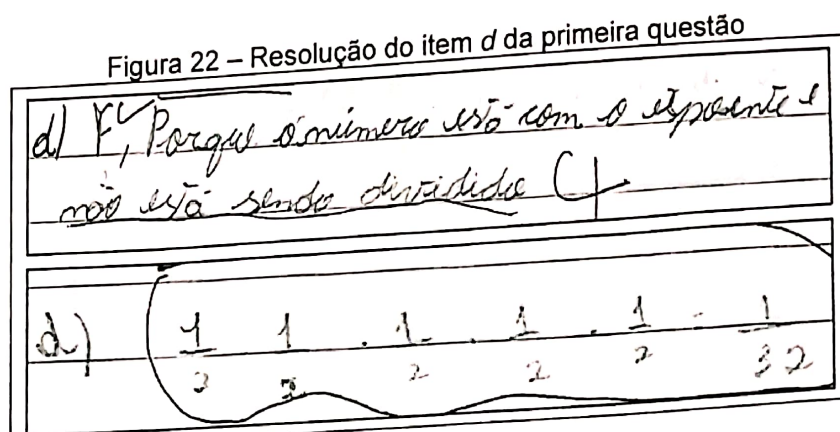 Figura 22 – Resolução do item d da primeira questão
d) F, Porque o número está com o expoente e
não está sendo dividido C
d) 1/2 1/2 . 1/2 . 1/2 . 1/2 = 1/32